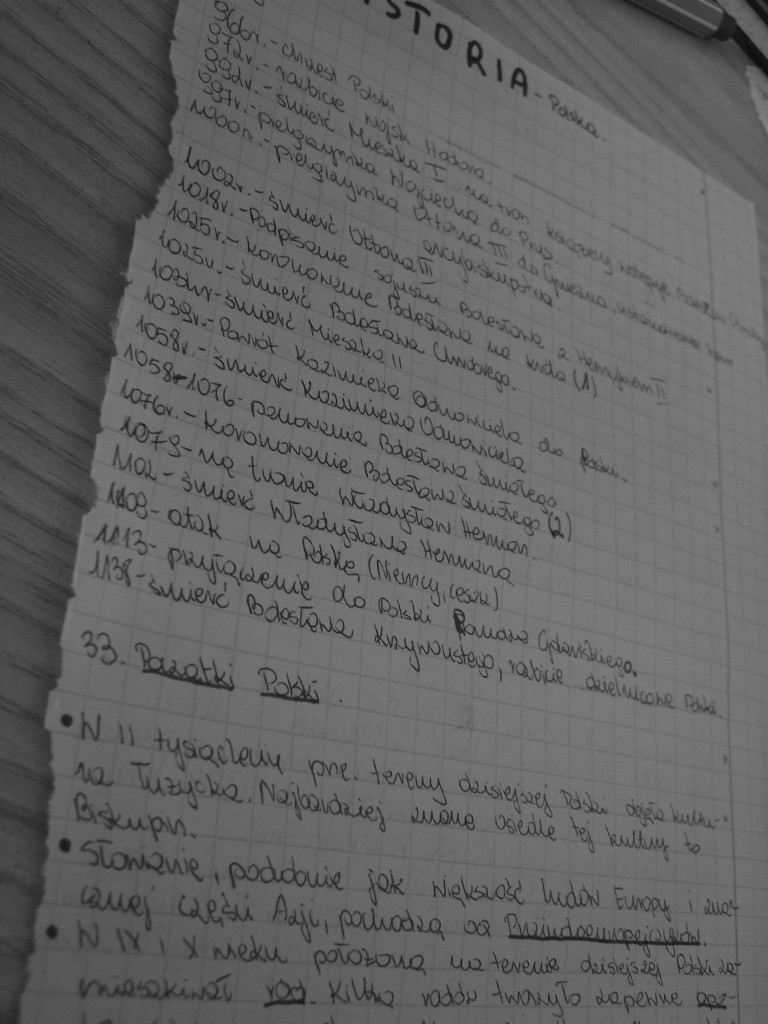 HISTORIA - Polska.
966r. - chrzest Polski
972r. - rozbicie wojsk Hodona.
992r. - śmierć Mieszka I na tron książęcy wstępuje Bolesław Chrobry
997r. - pielgrzymka Wojciecha do Prus.
1000r. - pielgrzymka Ottona III do Gniezna, ustanowienie tam
arcybiskupstwa.
1002r. - śmierć Ottona III
1018r. - Podpisanie sojuszu Bolesława z Henrykiem II
1025r. - koronowanie Bolesława na króla (1)
1025r. - śmierć Bolesława Chrobrego.
1034r - śmierć Mieszka II
1039r. - Powrót Kazimierza Odnowiciela do Polski.
1058r. - śmierć Kazimierza Odnowiciela
1058r - 1076 - panowanie Bolesława Śmiałego
1076r. - koronowanie Bolesława Śmiałego (2)
1079 - na tronie Władysław Herman.
1102 - śmierć Władysława Hermana
1109 - atak na Polskę (Niemcy, Czesi)
1113 - przyłączenie do Polski Pomorza Gdańskiego.
1138 - śmierć Bolesława Krzywoustego, rozbicie dzielnicowe Polski.
33. Początki Polski.
• W II tysiącleciu pne. tereny dzisiejszej Polski objęła kultu-
ra Łużycka. Najbardziej znane osiedle tej kultury to
Biskupin.
• Słowianie, podobnie jak większość ludów Europy i zna-
cznej części Azji, pochodzą od Praindoeuropejczyków.
• W IX i X wieku położoną na terenie dzisiejszej Polski za-
mieszkiwał ród. Kilka rodów tworzyło zapewne